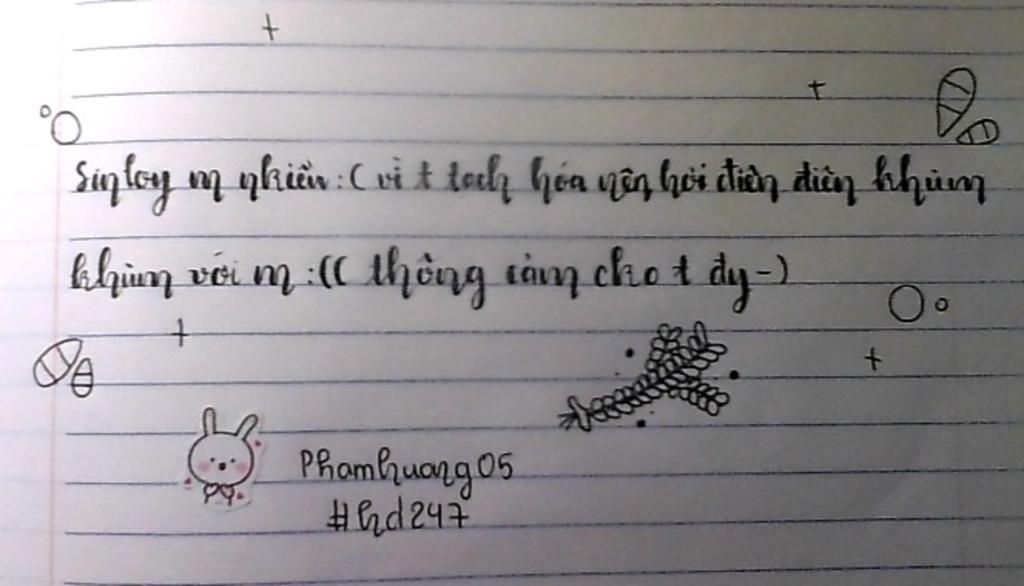 Sinloy m nhiều :( vì t toch hóa nên hơi điên điên khùm
khùm với m :(( thông cảm cho t dy-)
Phamhuang05
#hd247